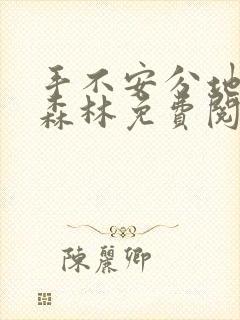 手不安分地
森林免費閱
陳麗卿